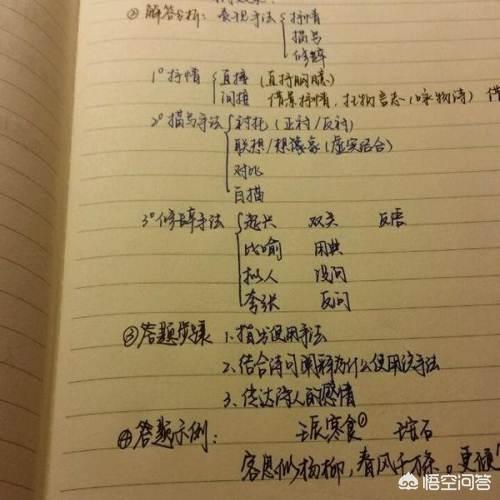 ②解答分析：表现手法 抒情
描写
修辞
1°抒情 直接（直抒胸臆）
间接 借景抒情，托物言志（咏物诗）借
2°描写手法 衬托（正衬/反衬）
联想/想象（虚实结合）
对比
白描
3°修辞手法 起兴 双关 反语
比喻 用典
拟人 设问
夸张 反问
③答题步骤 1、指出使用手法
2、结合诗句阐释为什么使用该手法
3、传达诗人的感情
④答题示例： 寒食①
客思似杨柳，春风千万条。更
悟空问答